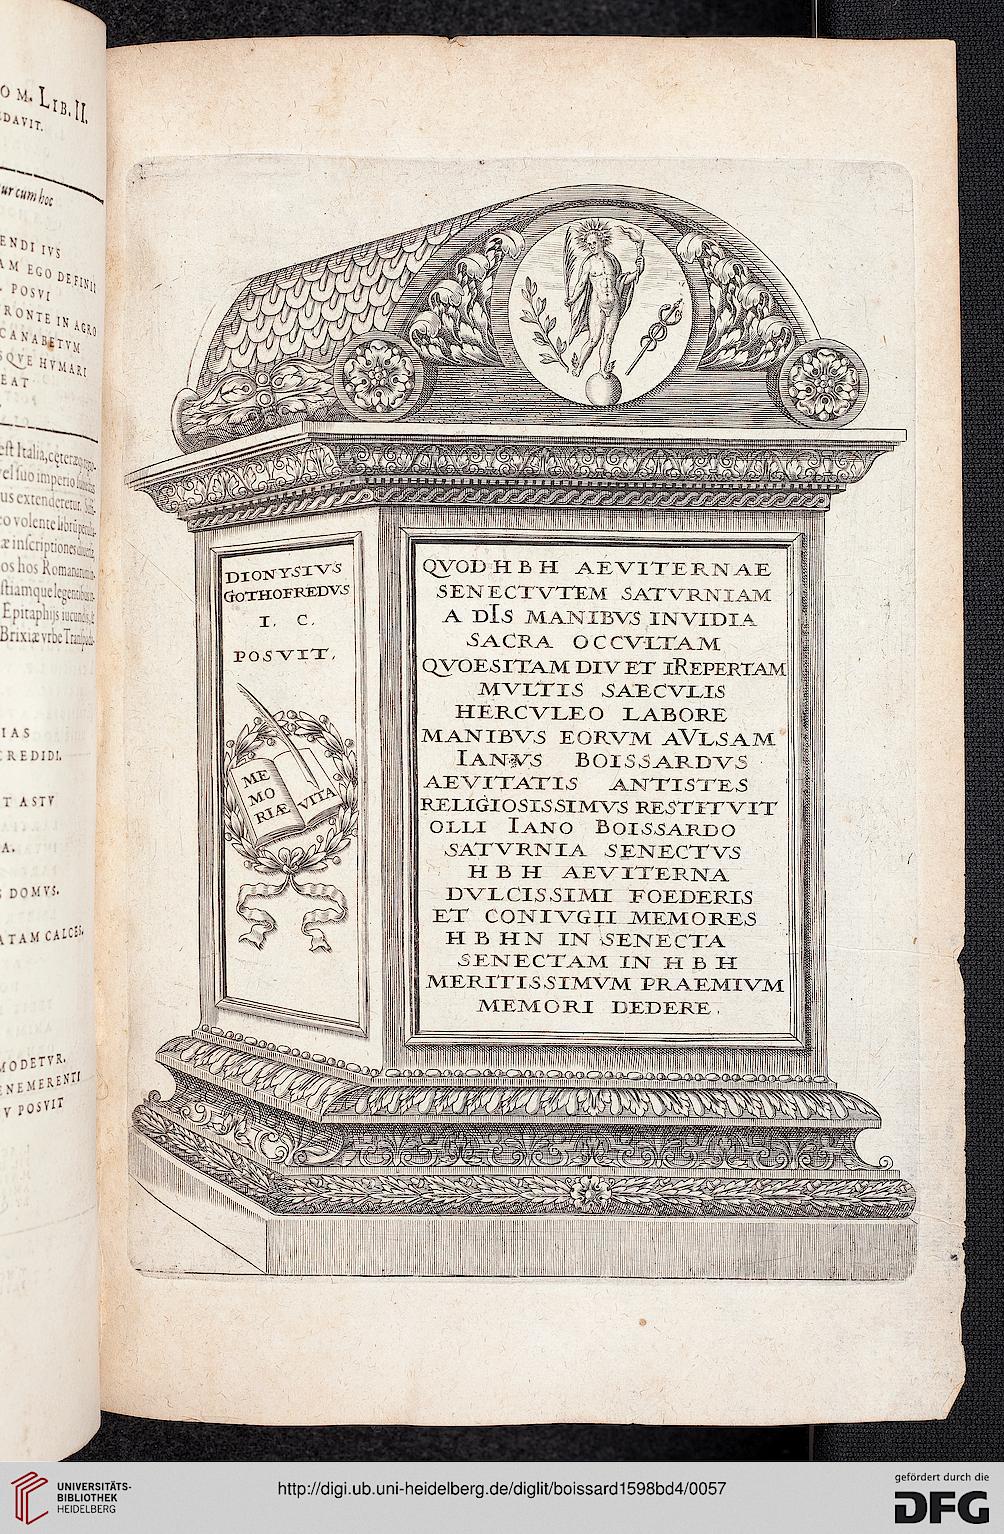 O M. LIB. II.
EDAVIT.
ur cum hoc
ENDI IVS
AM EGO DEFINIT
POSVI
FRONTE IN AGRO
CANABETVM
SQVE HVMARI
EAT
IAS
CREDIDI.
T ASTV
A.
DOMVS.
ATAM CALCES.
MODETVR.
ENEMERENTI
V POSVIT
DIONYSIVS
GOTHOFREDVS
I. C.
POSVIT.
ME
MO
RIÆ
VITA
QVOD HBH AEVITERNAE
SENECTVTEM SATVRNIAM
A DIS MANIBVS INVIDIA
SACRA OCCVLTAM
QVOESITAM DIV ET IREPERTAM
MVLTIS SAECVLIS
HERCVLEO LABORE
MANIBVS EORVM AVLSAM
IANVS BOISSARDVS
AEVITATIS ANTISTES
RELIGIOSISSIMVS RESTITVIT
OLLI IANO BOISSARDO
SATVRNIA SENECTVS
HBH AEVITERNA
DVLCISSIMI FOEDERIS
ET CONIVGII MEMORES
HBHN IN SENECTA
SENECTAM IN HBH
MERITISSIMVM PRAEMIVM
MEMORI DEDERE.
UNIVERSITÄTS-
BIBLIOTHEK
HEIDELBERG
http://digi.ub.uni-heidelberg.de/diglit/boissard1598bd4/0057
gefördert durch die
DFG